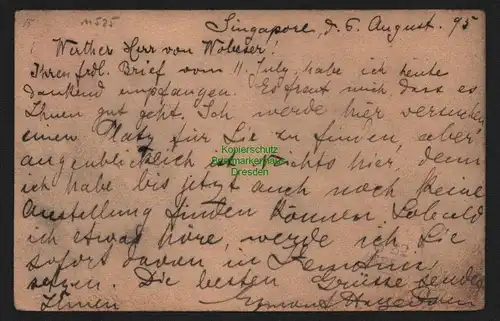 Singapore, d. 6. August. 95
Werther Herr von Wobeser!
Ihren frdl. Brief vom 11. July, habe ich heute
dankend empfangen. Es freut mich dass es
Ihnen gut geht. Ich werde hier versuchen
einen Platz für Sie zu finden, aber
augenblicklich ist nichts hier, denn
ich habe bis jetzt auch noch keine
Anstellung finden können. Sobald
ich etwas höre, werde ich Sie
sofort davon in Kenntniss
setzen. Die besten Grüsse sendet
Ihnen
Kopierschutz
Briefmarkenring
Dresden